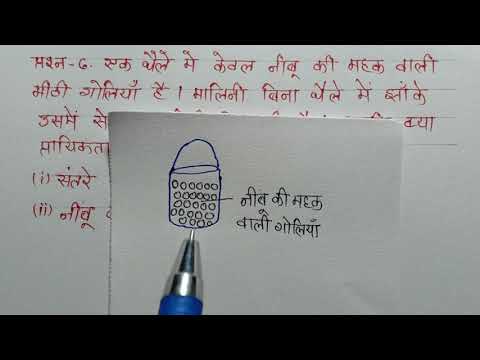 प्रश्न-6. एक थैले में केवल नींबू की महक वाली
मीठी गोलियाँ है । मालिनी बिना थैले में झाँके
उसमें से क्या
प्रायिकता
(i) संतरे
(ii) नींबू
नींबू की महक
वाली गोलियाँ